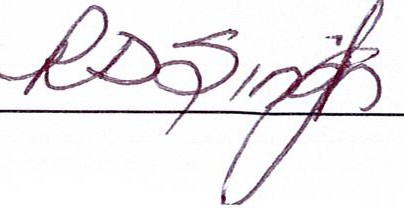 RD Singh